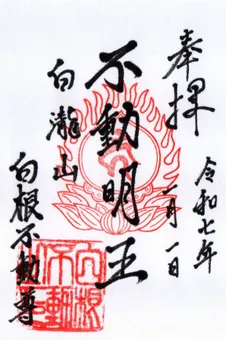 奉拝
令和七年
一月一日
不動明王
白瀧山
白根不動尊